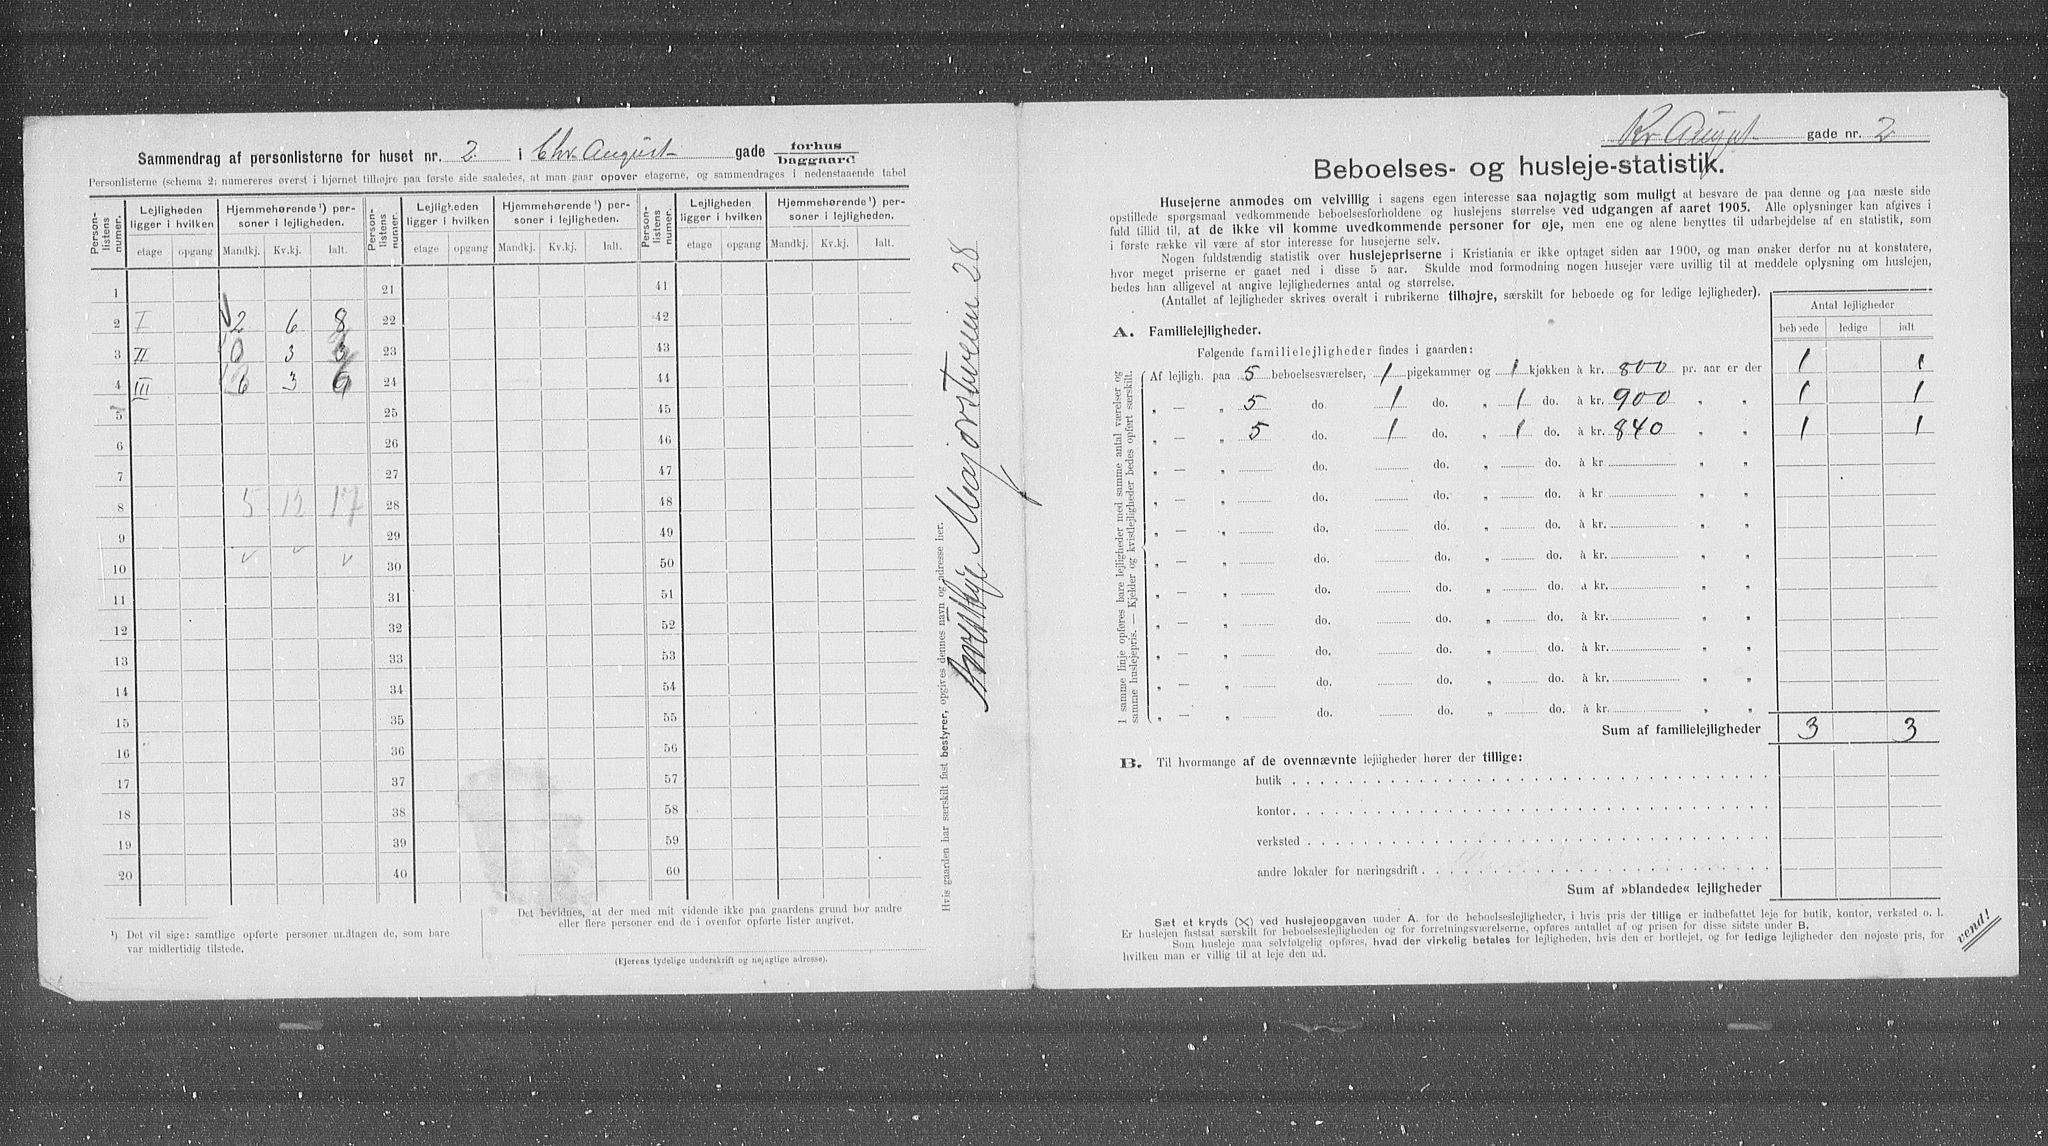 Sammendrag af personlisterne for huset nr. 2 i Chr. August gade forhus baggaard
Personlisterne (schema 2; numereres øverst i hjørnet tilhøjre paa første side saaledes, at man gaar opover etagerne, og sammendrages i nedenstaaende tabel
Person-listens numer. Lejligheden ligger i hvilken Hjemmehørende ¹) personer i lejligheden. Person-listens numer. Lejligheden ligger i hvilken Hjemmehørende ¹) personer i lejligheden. Person-listens numer. Lejligheden ligger i hvilken Hjemmehørende ¹) personer i lejligheden.
etage opgang Mandkj. Kv.kj. Ialt. etage opgang Mandkj. Kv.kj. Ialt. etage opgang Mandkj. Kv.kj. Ialt.
1 21 41
2 I 2 6 8 22 42
3 II 0 3 3 23 43
4 III 3 24 44
5 25 45
6 26 46
7 27 47
8 5 12 17 28 48
9 29 49
10 30 50
11 31 51
12 32 52
13 33 53
14 34 54
15 35 55
16 36 56
17 37 57
18 38 58
19 39 59
20 40 60
¹) Det vil sige: samtlige opførte personer undtagen de, som bare
var midlertidig tilstede.
Det bevidnes, at der med mit vidende ikke paa gaardens grund bor andre
eller flere personer end de i ovenfor opførte lister angivet.
(Ejerens tydelige underskrift og nøjagtige adresse).
Hvis gaarden har særskilt fast bestyrer, opgives dennes navn og adresse her.
Majorstuveien 28
Kr August gade nr. 2
Beboelses- og husleje-statistik.
Husejerne anmodes om velvillig i sagens egen interesse saa nøjagtig som muligt at besvare de paa denne og paa næste side
opstillede spørgsmaal vedkommende beboelsesforholdene og huslejens størrelse ved udgangen af aaret 1905. Alle oplysninger kan afgives i
fuld tillid til, at de ikke vil komme uvedkommende personer for øje, men ene og alene benyttes til udarbejdelse af en statistik, som
i første række vil være af stor interesse for husejerne selv.
Nogen fuldstændig statistik over huslejepriserne i Kristiania er ikke optaget siden aar 1900, og man ønsker derfor nu at konstatere,
hvor meget priserne er gaaet ned i disse 5 aar. Skulde mod formodning nogen husejer være uvillig til at meddele oplysning om huslejen,
bedes han alligevel at angive lejlighedernes antal og størrelse.
(Antallet af lejligheder skrives overalt i rubrikerne tilhøjre, særskilt for beboede og for ledige lejligheder).
Antal lejligheder
beboede ledige ialt
A. Familielejligheder.
Følgende familielejligheder findes i gaarden:
Af lejligh. paa 5 beboelsesværelser, 1 pigekammer og 1 kjøkken à kr. 800 pr. aar er der 1 1
„ — „ 5 do. 1 do. „ 1 do. à kr. 900 „ „ 1 1
„ — „ 5 do. 1 do. „ 1 do. à kr. 840 „ „ 1 1
„ — „ do. do. „ do. à kr. „ „
„ — „ do. do. „ do. à kr. „ „
„ — „ do. do. „ do. à kr. „ „
„ — „ do. do. „ do. à kr. „ „
„ — „ do. do. „ do. à kr. „ „
„ — „ do. do. „ do. à kr. „ „
„ — „ do. do. „ do. à kr. „ „
„ — „ do. do. „ do. à kr. „ „
„ — „ do. do. „ do. à kr. „ „
I samme linje opføres bare lejligheder med samme antal værelser og
samme huslejepris. — Kjelder og kvistlejligheder bedes opført særskilt.
Sum af familielejligheder 3 3
B. Til hvormange af de ovennævnte lejligheder hører der tillige:
butik
kontor
verksted
andre lokaler for næringsdrift
Sum af »blandede« lejligheder
Sæt et kryds (X) ved huslejeopgaven under A. for de beboelseslejligheder, i hvis pris der tillige er indbefattet leje for butik, kontor, verksted o. l.
Er huslejen fastsat særskilt for beboelseslejligheden og for forretningsværelserne, opføres antallet af og prisen for disse sidste under B.
Som husleje maa selvfølgelig opføres, hvad der virkelig betales for lejligheden, hvis den er bortlejet, og for ledige lejligheder den nøjeste pris, for
hvilken man er villig til at leje den ud.
vend!